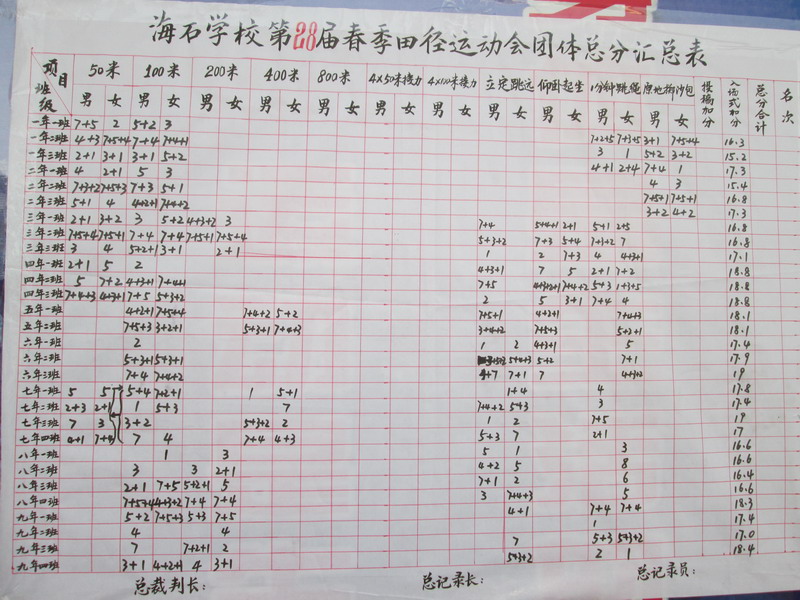 海石学校第28届春季田径运动会团体总分汇总表
项目 50米 100米 200米 400米 800米 4×50米接力 4×100米接力 立定跳远 仰卧起坐 1分钟跳绳 原地掷沙包 接福加分 入场式和分 总分合计 名次
班级 男 女 男 女 男 女 男 女 男 女 男 女 男 女 男 女
一年一班 7+5 2 5+2 3
一年二班 4+3 7+5+4 7+4 7+4+1 7+2+5 7+3+5 3+1 7+5+4 16.3
一年三班 2+1 3+1 3+1 5+2 3 1 5+2 3+2 15.2
二年一班 4 2+1 5 3 4+1 2+4 7+4 1 17.3
二年二班 7+3+2 7+5+3 7+3 5+1 4 3 15.4
二年三班 5+1 4 4+2+1 7+4+2 7+5+1 7+5+1 16.8
三年一班 2+1 3+2 3 5+2 4+3+2 3 3+2 4+2 17.3
三年二班 7+5+4 7+5+1 7+4 7+4 7+5+1 7+5+4 7+4 5+4+1 2+1 5+1 2+5 16.8
三年三班 3 4 5+2+1 3+1 2+1 5+3+2 7+3 5+4 7+3+2 7 16.8
四年一班 2+1 5 2 1 2 7+3 4 4+3+1 17.1
四年二班 5 7+2 4+3+1 7+4+1 4+3+1 7 5 2+1 7+2 18.8
四年三班 7+4+3 4+3+1 7+5 5+3+2 7+5 4+3+2 7+4+2 5+3 1+3+5 18.8
五年一班 4+2+1 7+5+4 7+4+2 5+2 2 5 3+1 7+4 4 18.8
五年二班 7+5+3 3+2+1 5+3+1 7+4+3 7+5+1 4+2+1 7+4+3 18.1
六年一班 2 3+4+2 7+5+3 5+2+1 18.1
六年二班 5+3+1 5+3+1 1 2 4+3+1 5 17.4
六年三班 7+4 7+4+2 5+4+3 5+2 7+1 17.9
七年一班 5 5 5+4 7+2+1 1 5+1 4+7 7+1 7 4+3+2 19
七年二班 2+3 2+1 1 5+3 7 1+4 4 17.8
七年三班 7 3 3+2 5+3+2 2 7+4+2 5+3 3 17.4
七年四班 4+1 7+4 7 4 7+4 4+3 1 2 7+5 19
八年一班 1 3 5+3 7 2+1 17
八年二班 3 3 2+1 5 1 3 16.6
八年三班 2+1 7+5 5+2+1 5 4+2 5 8 16.6
八年四班 7+5+4 4+3+2 7+4 7+4 7+1 2 6 16.4
九年一班 5+2 7+5+3 5+3 7+5 3 7+4+3 5 16.6
九年二班 4 4 4 4+1 7+4 7+4 18.3
九年三班 7 7+2+1 2 1 17.4
九年四班 3+1 4+2+1 4 3+1 7 5+3 5+3+2 17.0
5+3+2 2 1 18.4
总裁判长： 总记录长： 总记录员：